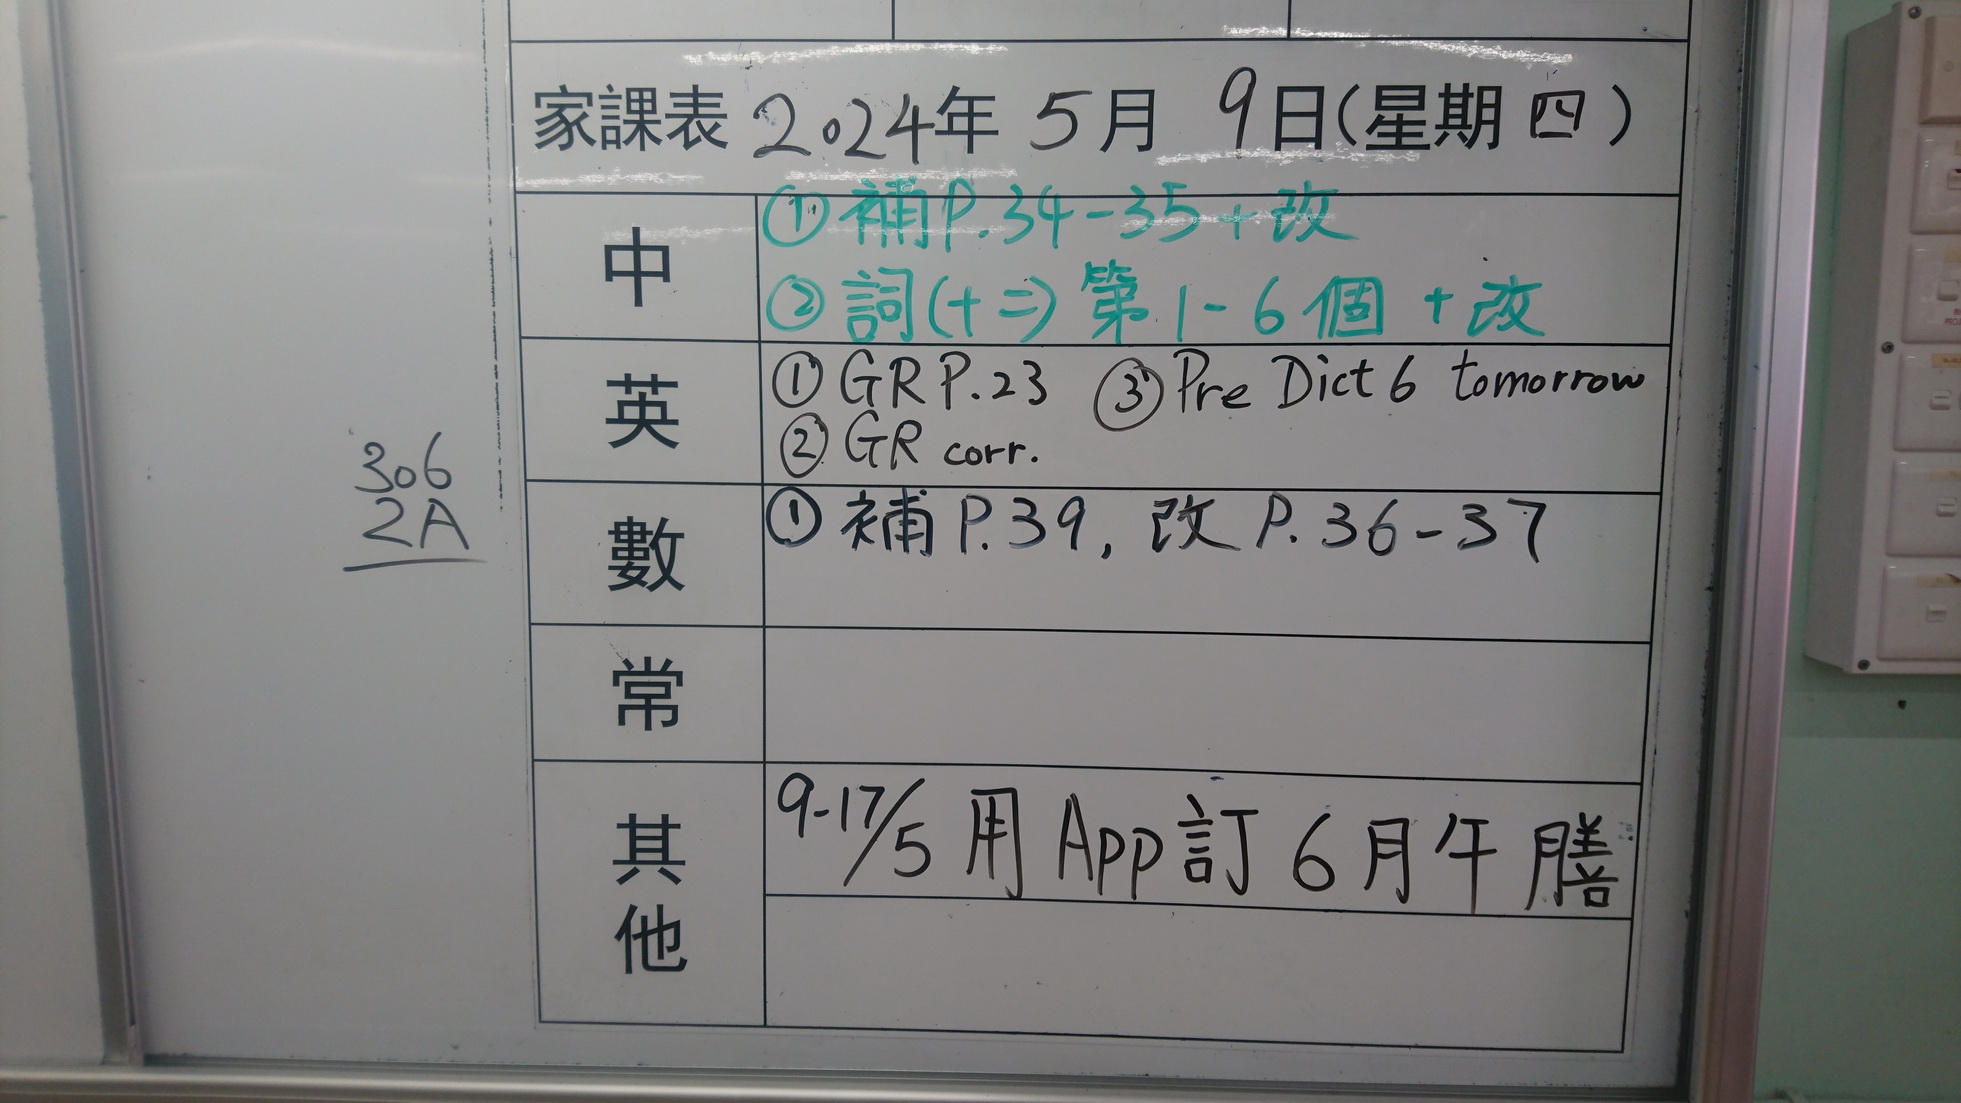 家課表 2024年 5月 9日(星期四)
中
① 補P.34-35+改
② 詞(十二)第1-6個+改
英
① GR P.23 ③ Pre Dict 6 tomorrow
② GR corr.
數
① 補P.39, 改P.36-37
常
其他
9-17/5 用App訂6月午膳
306
2A